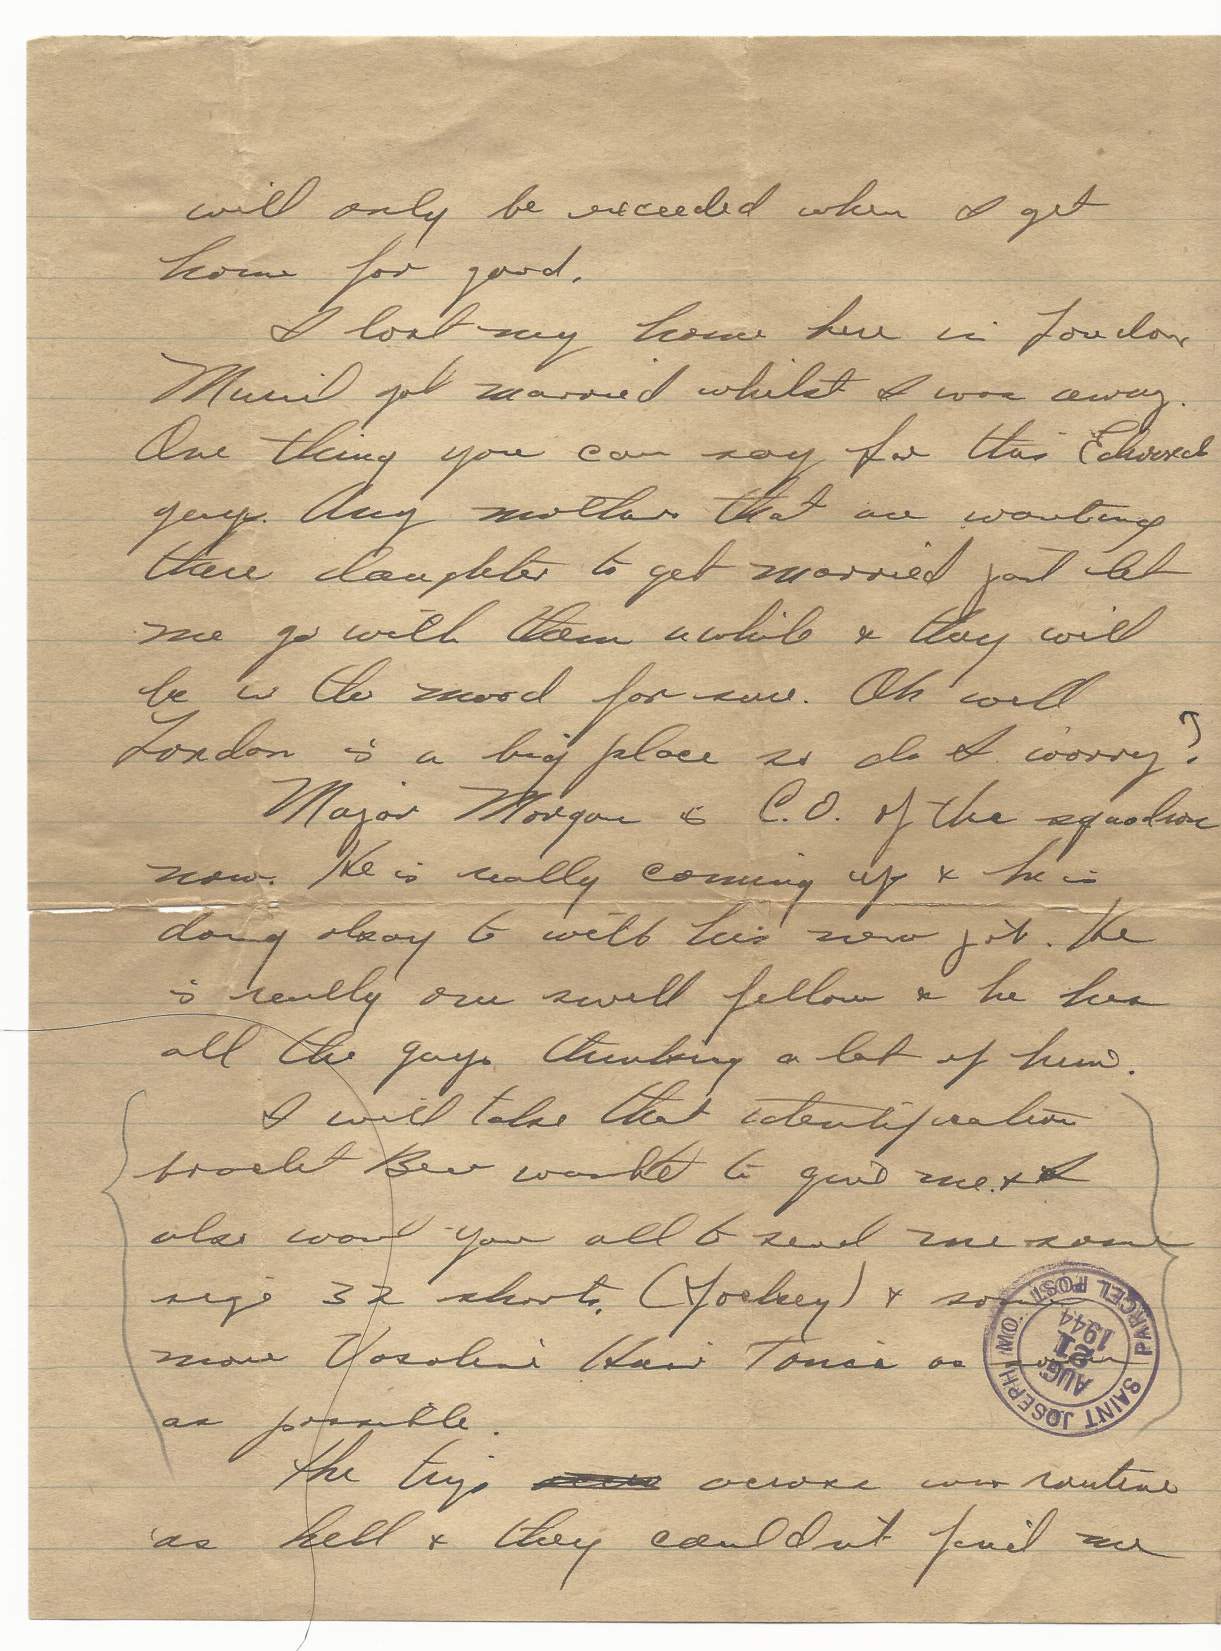 will only be exceeded when I get
home for good.
I lost my home here in London
Muriel got married whilst I was away.
One thing you can say for this Edward
guy. Any mothers that are wanting
there daughter to get married just let
me go with them awhile & they will
be in the mood for sure. Oh well
London is a big place so do I worry?
Major Morgan is C.O. of the squadron
now. He is really coming up & he is
doing okay to with his new job. He
is really one swell fellow & he has
all the guys thinking a lot of him.
I will take that identification
braclet Bev wants to give me. & I
also want you all to send me some
size 32 shorts. (Jockey) & some
more Vasoline Hair Tonic as soon
as possible.
The trip across was routine
as hell & they couldn't find me
SAINT JOSEPH, MO. PARCEL POST
AUG
21
1944